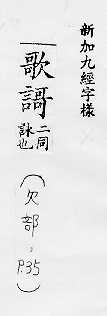 新加九經字樣
歌謌二同
詠也
(欠部，P.35)